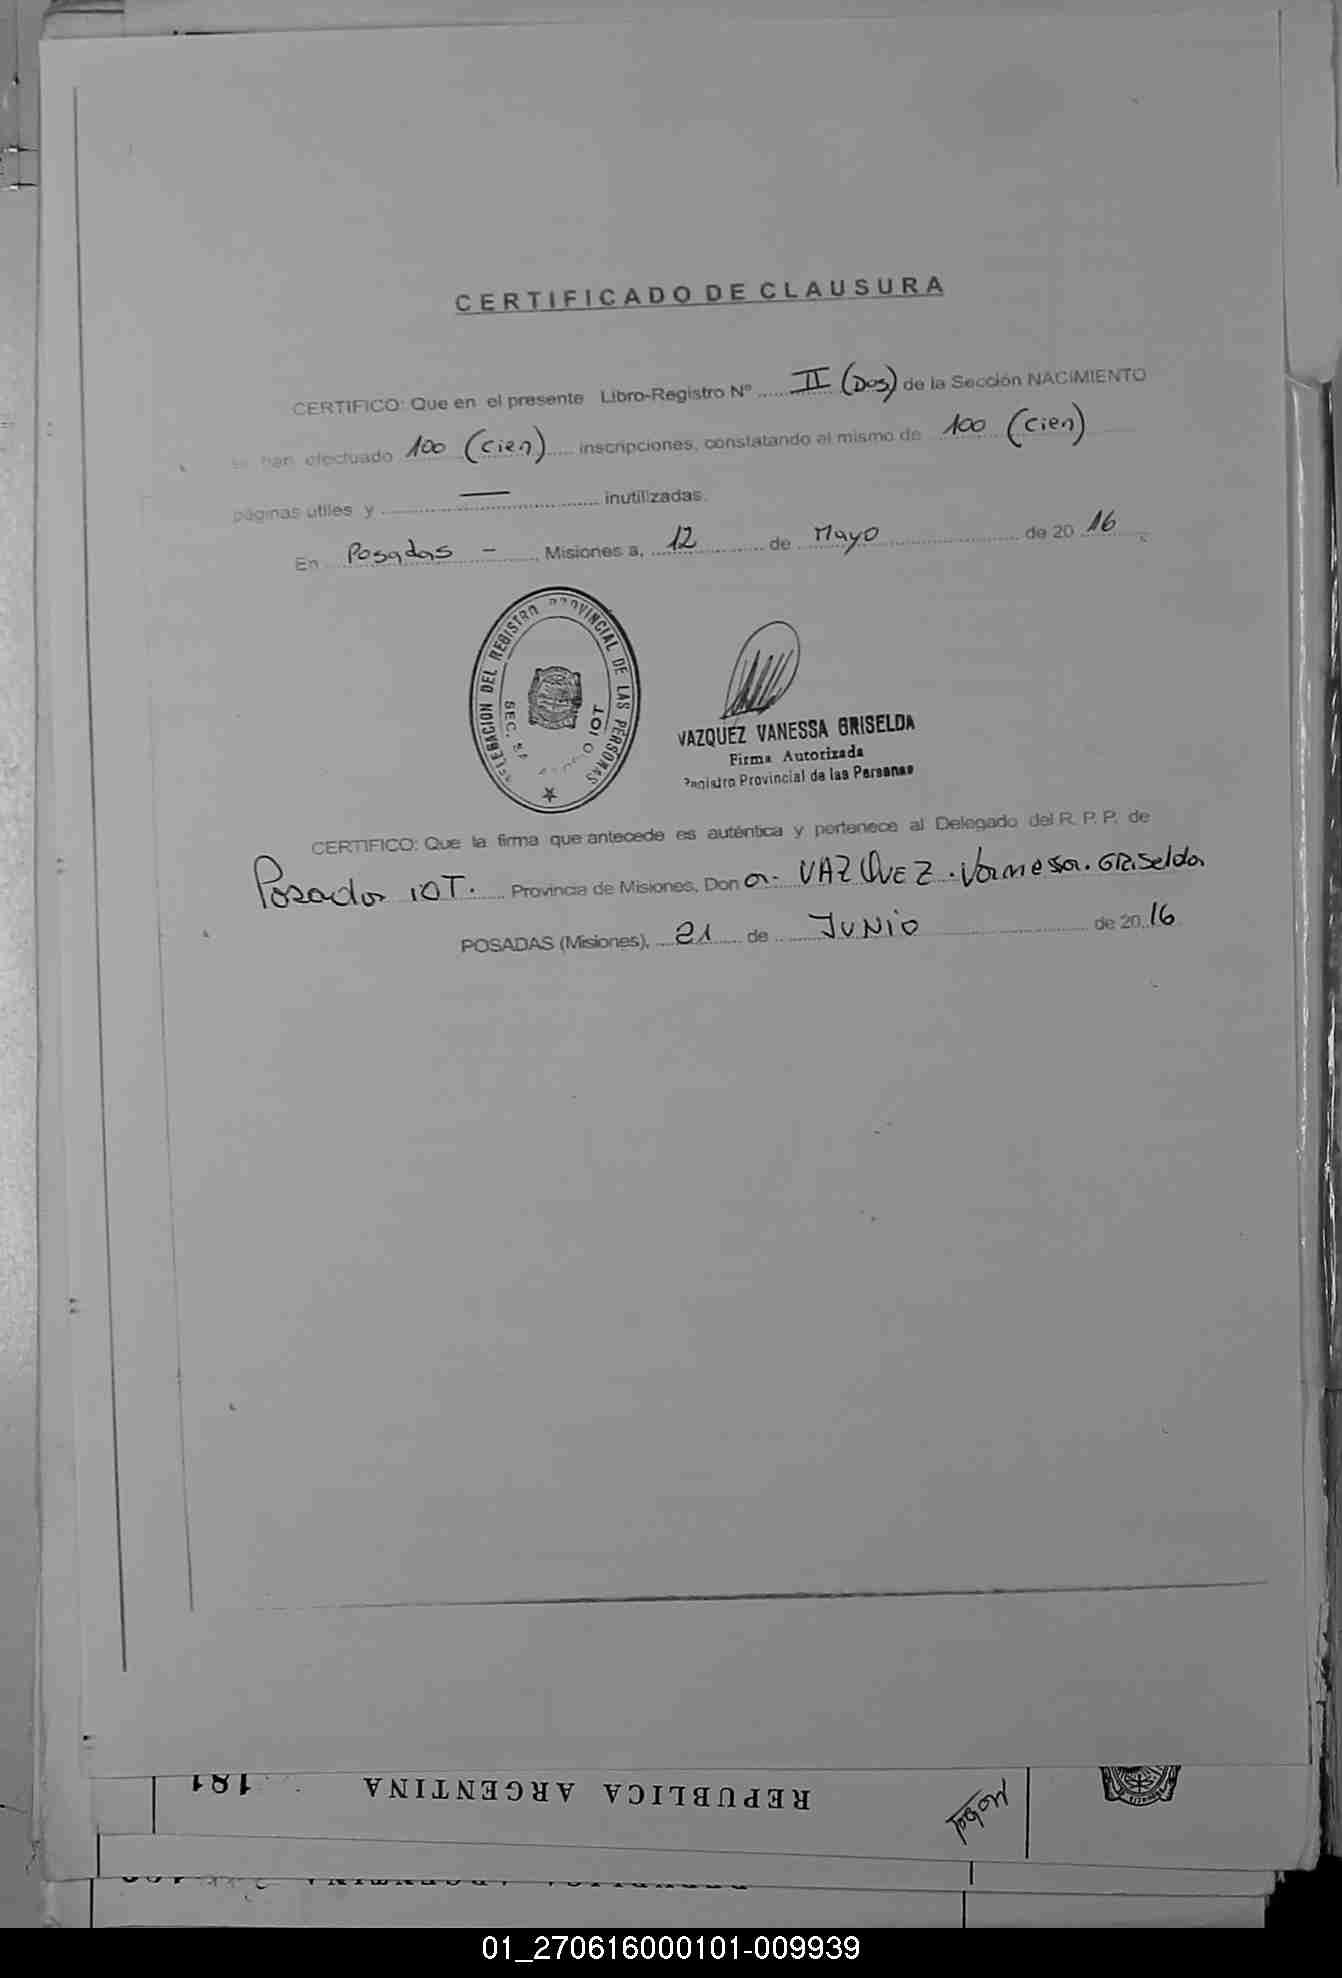 CERTIFICADO DE CLAUSURA
CERTIFICO: Que en el presente Libro-Registro Nº II (Dos) de la Sección NACIMIENTO
se han efectuado 100 (cien) inscripciones, constatando el mismo de 100 (cien)
páginas utiles y — inutilizadas.
En Posadas - , Misiones a, 12 de Mayo de 20 16
DELEGACION DEL REGISTRO PROVINCIAL DE LAS PERSONAS
SEC. IOT
VAZQUEZ VANESSA GRISELDA
Firma Autorizada
Registro Provincial de las Personas
CERTIFICO: Que la firma que antecede es auténtica y pertenece al Delegado del R. P. P. de
Posadas IOT. Provincia de Misiones, Don a. VAZQUEZ. Vanessa. GRiselda
POSADAS (Misiones), 21 de JUNiO de 20 16
181 REPUBLICA ARGENTINA
REPUBLICA ARGENTINA
01_270616000101-009939